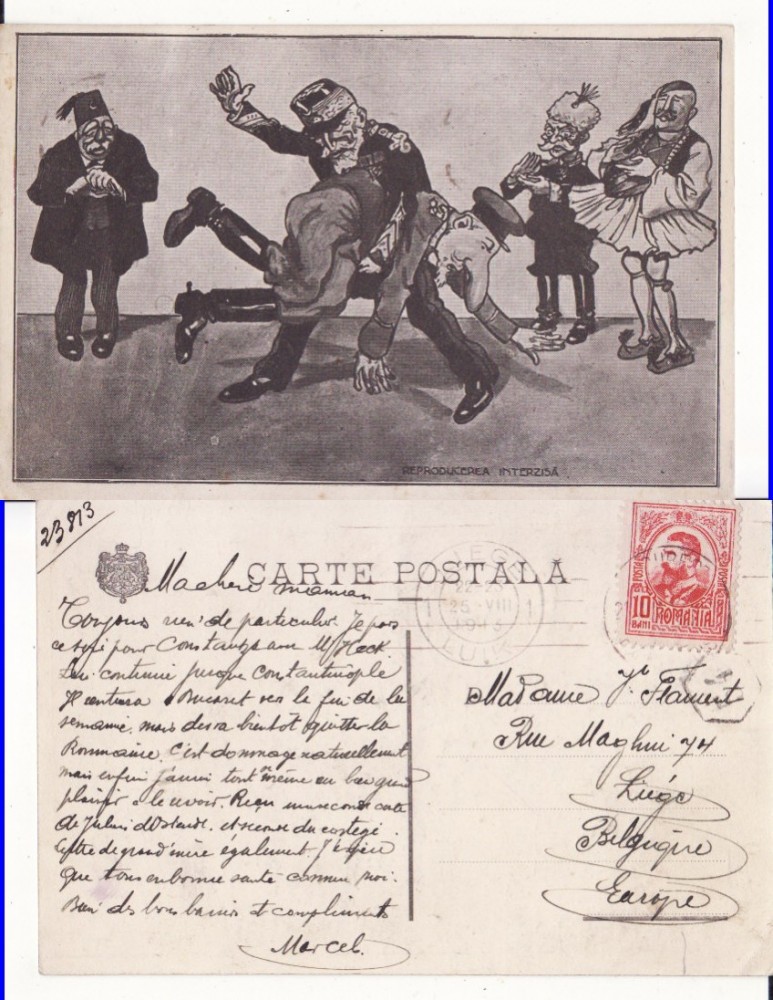 REPRODUCEREA INTERZISĂ
23 8 13
CARTE POSTALĂ
LIEGE
25 VIII
1913
LUIK
POSTA
10
BANI
ROMANIA
Ma chère maman
Toujours rien de particulier. Je pars
ce soir pour Constantza avec Mr Heck.
Lui continue jusque Constantinople
Bucarest vers la fin de la
semaine, mais devra bientot quitter la
Roumanie. C'est dommage naturellement
mais enfin j'aurai tout de même eu bien grand
plaisir à le revoir. Reçu une seconde carte
de Julien d'Ostende, et du cortège.
de grand'mère également. J'espère
que tous en bonne santé comme moi.
Bien des bons baisers et compliments
Marcel.
Madame Flament
Rue Maghin 74
Liége
Belgique
Europe